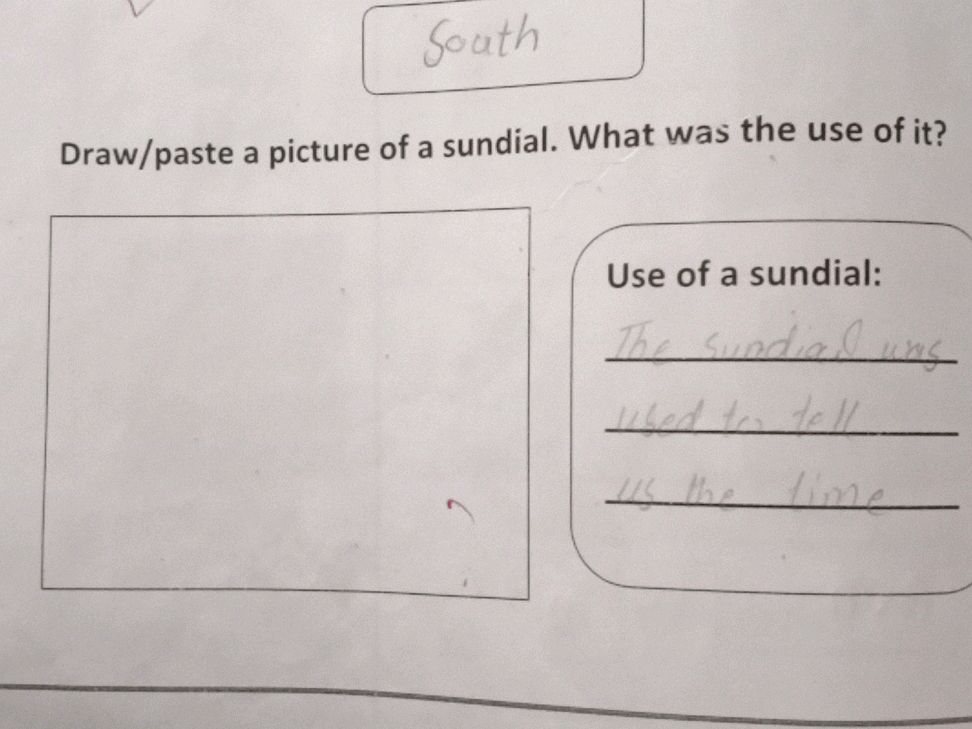 South
Draw/paste a picture of a sundial. What was the use of it?
Use of a sundial:
The sundial was
used to tell
us the time